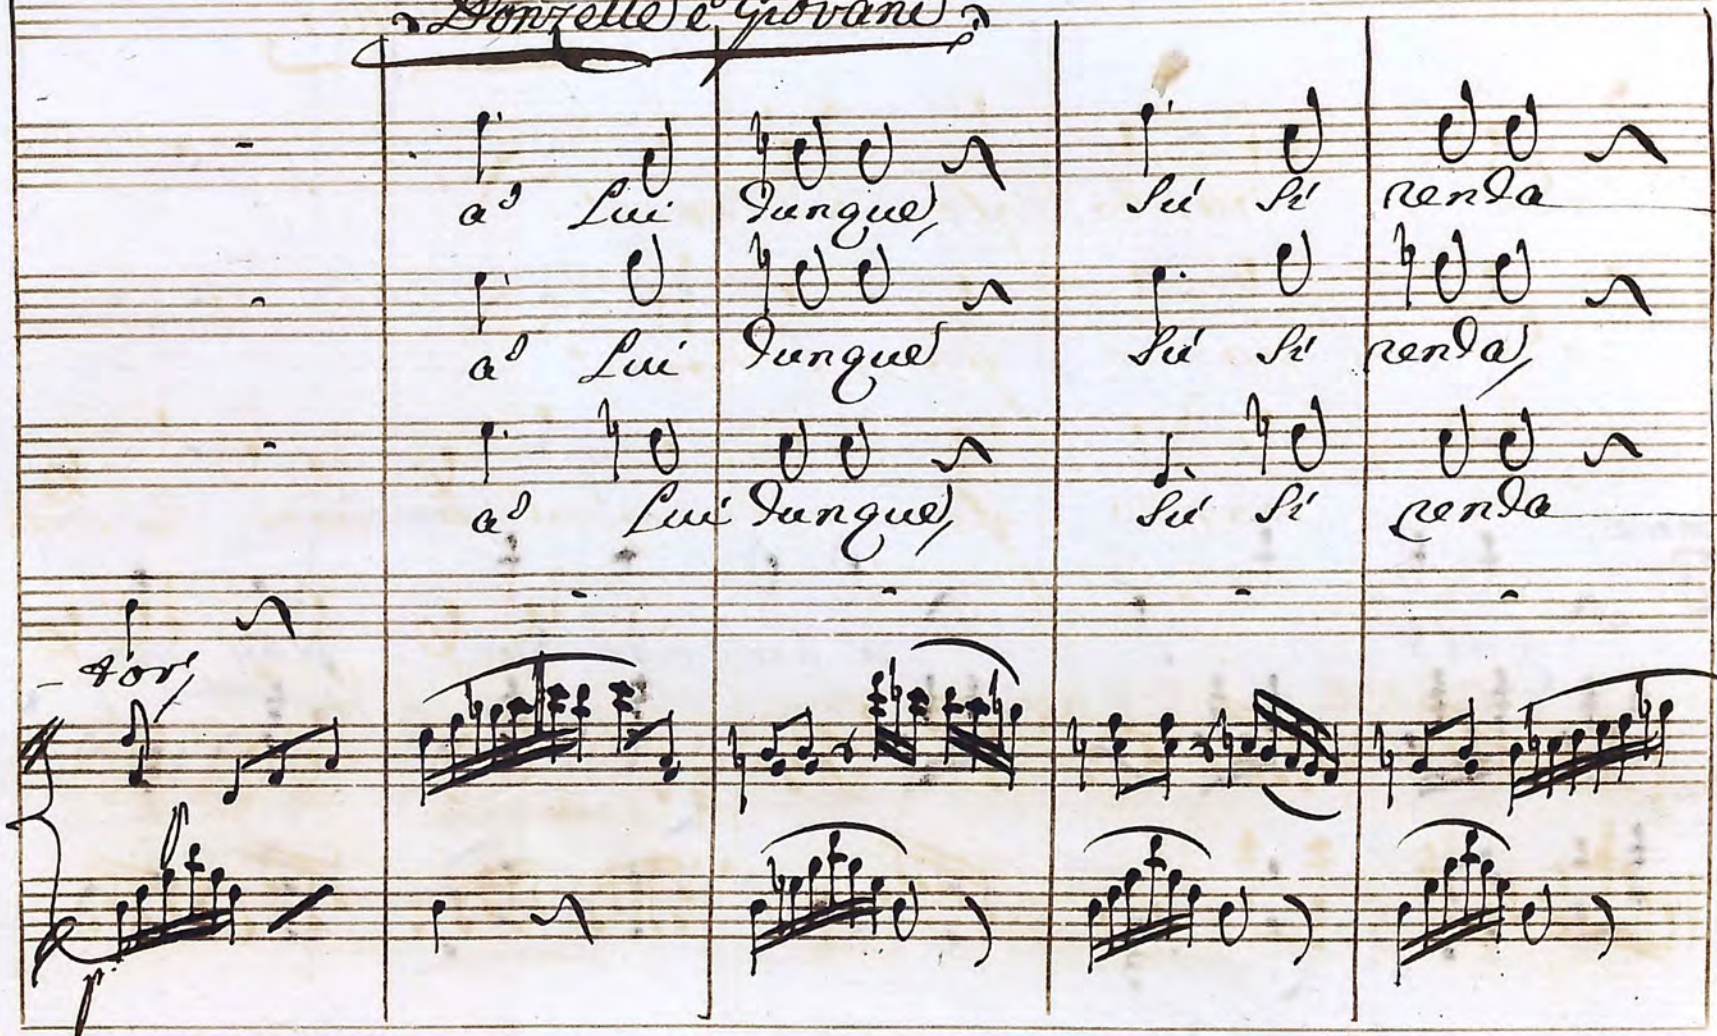 Donzelle e Giovani
a Lui dunque, Su Si renda
a Lui dunque Su Si renda,
a Lui dunque, Su Si renda
tor,
p.